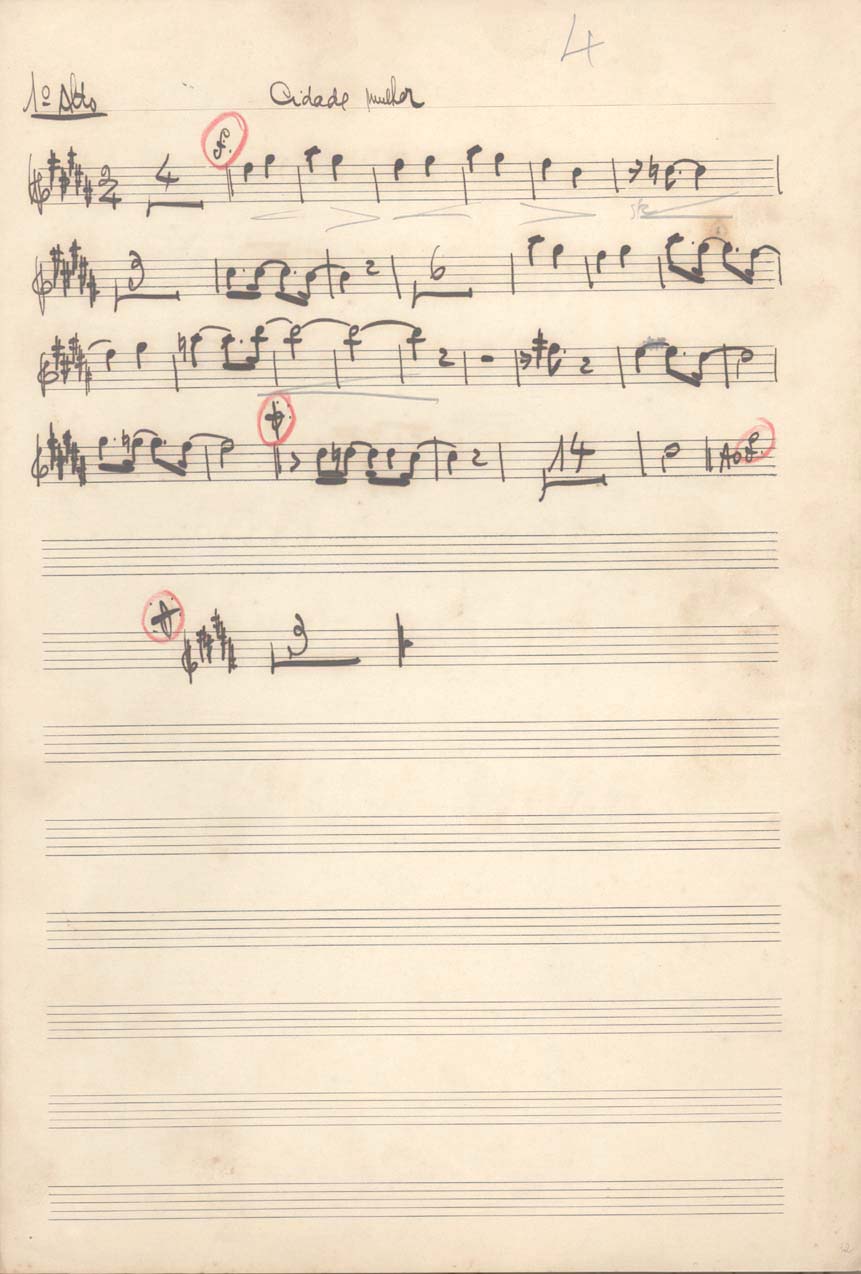 4
1º Alto Cidade mulher
2/4 4
3 6
14 Ao
3